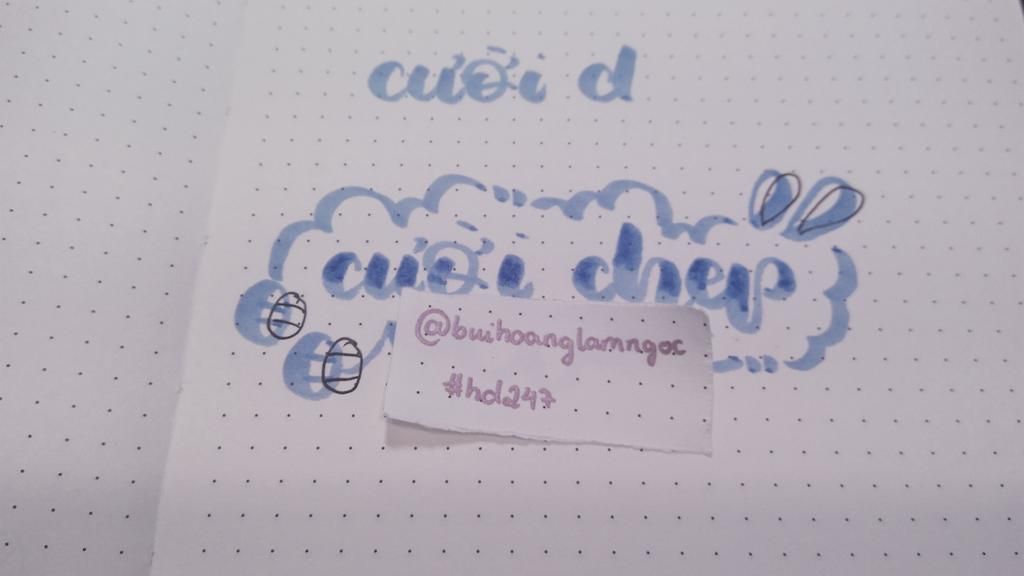 cười d
cười dhep
@buihoanglamngoc
#hd247